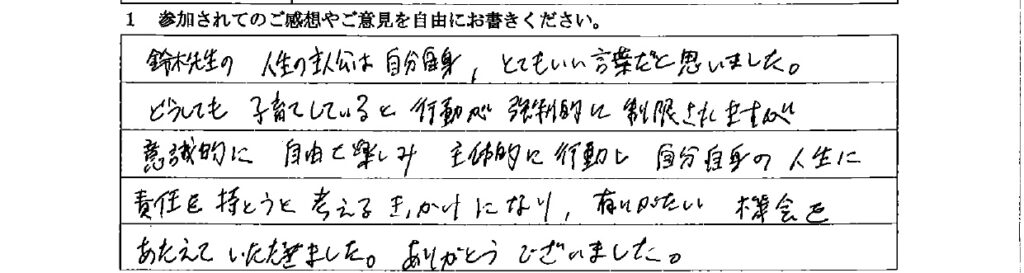 1 参加されてのご感想やご意見を自由にお書きください。
鈴木先生の 人生の主人公は自分自身, とてもいい言葉だと思いました。
どうしても 子育てしていると 行動が 強制的に 制限されますが
意識的に 自由を楽しみ 主体的に行動し 自分自身の人生に
責任を持とうと 考えるきっかけになり, 有りがたい 機会を
あたえて いただきました。ありがとう ございました。